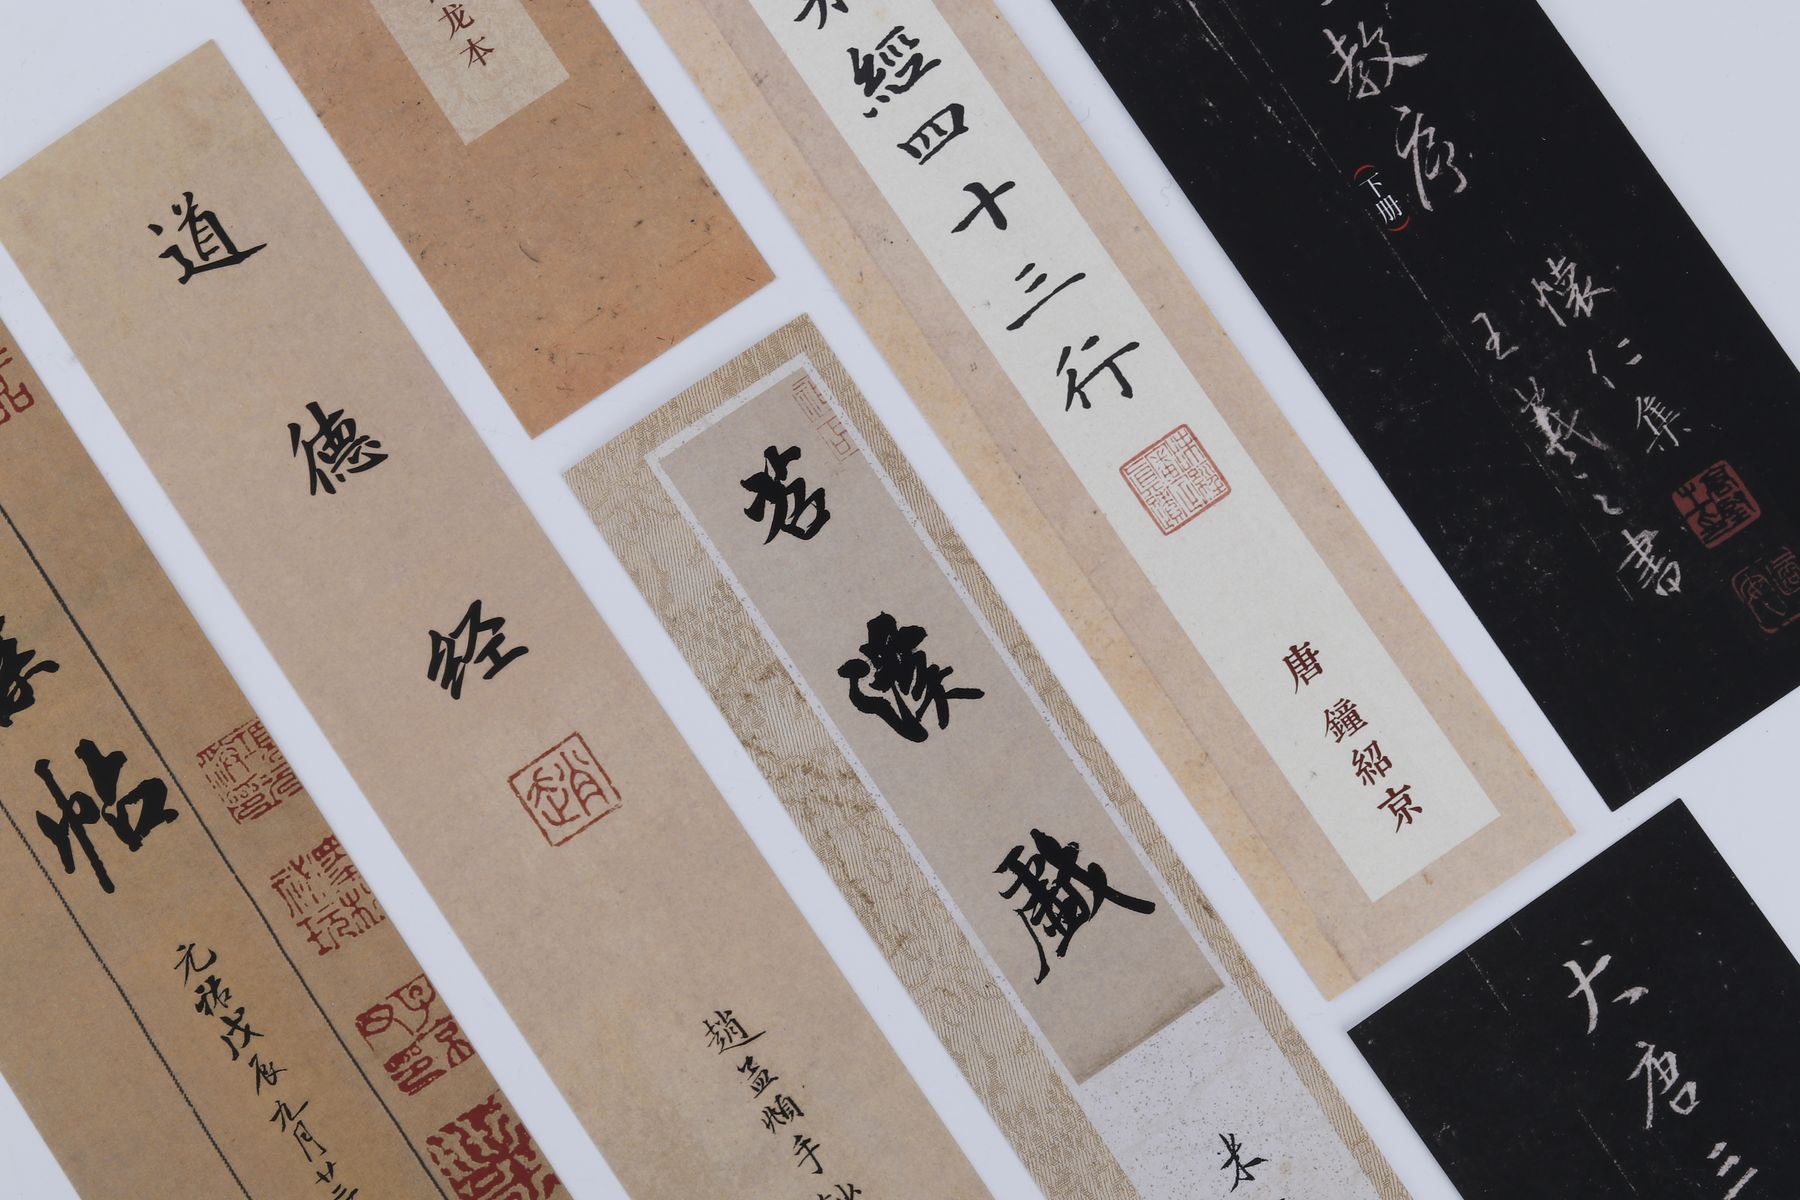 帖
元祐戊辰九月廿三
道德经
趙孟頫手
龙本
苕溪戲
米
經四十三行
唐 鐘紹京
教序
(下册)
懷仁集
王羲之書
大唐三